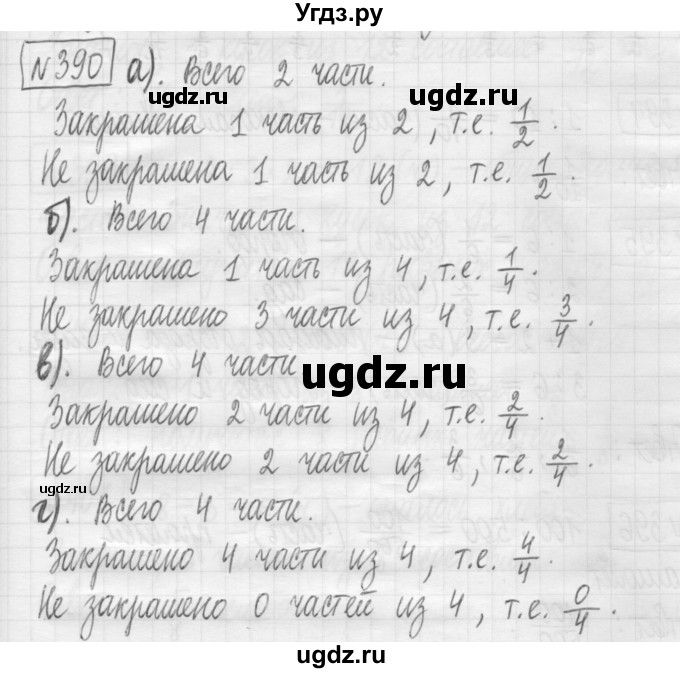 Угдз.ру
№390 а). Всего 2 части.
ugdz.ru ugdz.ru
Закрашена 1 часть из 2, т.е. 1/2.
Не закрашена 1 часть из 2, т.е. 1/2.
б). Всего 4 части.
ugdz.ru ugdz.ru
Закрашена 1 часть из 4, т.е. 1/4.
Не закрашено 3 части из 4, т.е. 3/4.
в). Всего 4 части
ugdz.ru
Закрашено 2 части из 4, т.е. 2/4.
Не закрашено 2 части из 4, т.е. 2/4.
ugdz.ru ugdz.ru
г). Всего 4 части.
Закрашено 4 части из 4, т.е. 4/4.
Не закрашено 0 частей из 4, т.е. 0/4.
ugdz.ru